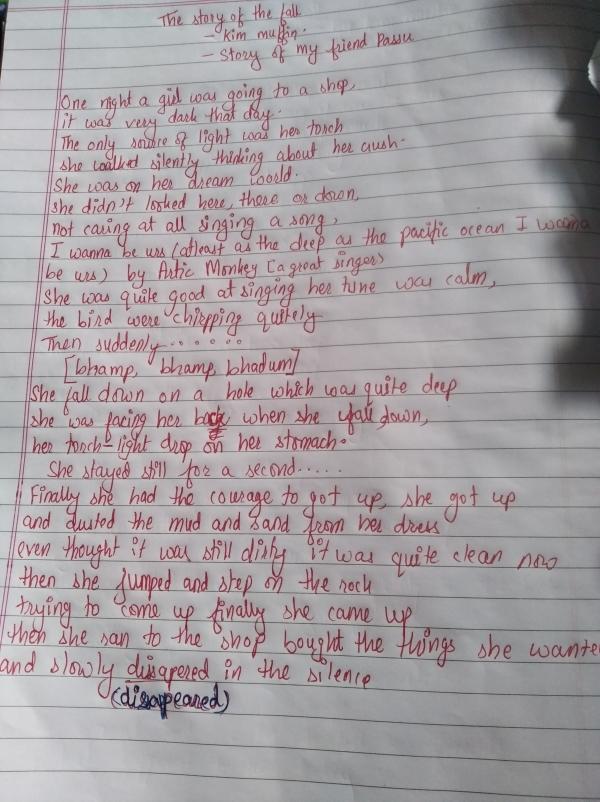 The story of the fall
- Kim muffin.
- Story of my friend Passu
One night a girl was going to a shop,
it was very dark that day.
The only source of light was her torch
she walked silently thinking about her crush.
She was on her dream world.
she didn't looked here, there or down,
not caring at all singing a song,
I wanna be urs (atleast as the deep as the pacific ocean I wanna
be urs) by Artic Monkey [a great singer]
She was quite good at singing her tune was calm,
the bird were chirpping quitely
Then suddenly.......
[bhamp, bhamp, bhadum]
She fall down on a hole which was quite deep
she was facing her back when she fall down,
her torch-light drop on her stomach.
She stayed still for a second.....
Finally she had the courage to got up, she got up
and dusted the mud and sand from her dress
even thought it was still dirty it was quite clean now
then she jumped and step on the rock
trying to come up finally she came up
then she ran to the shop bought the things she wante
and slowly disapered in the silence
(disappeared)